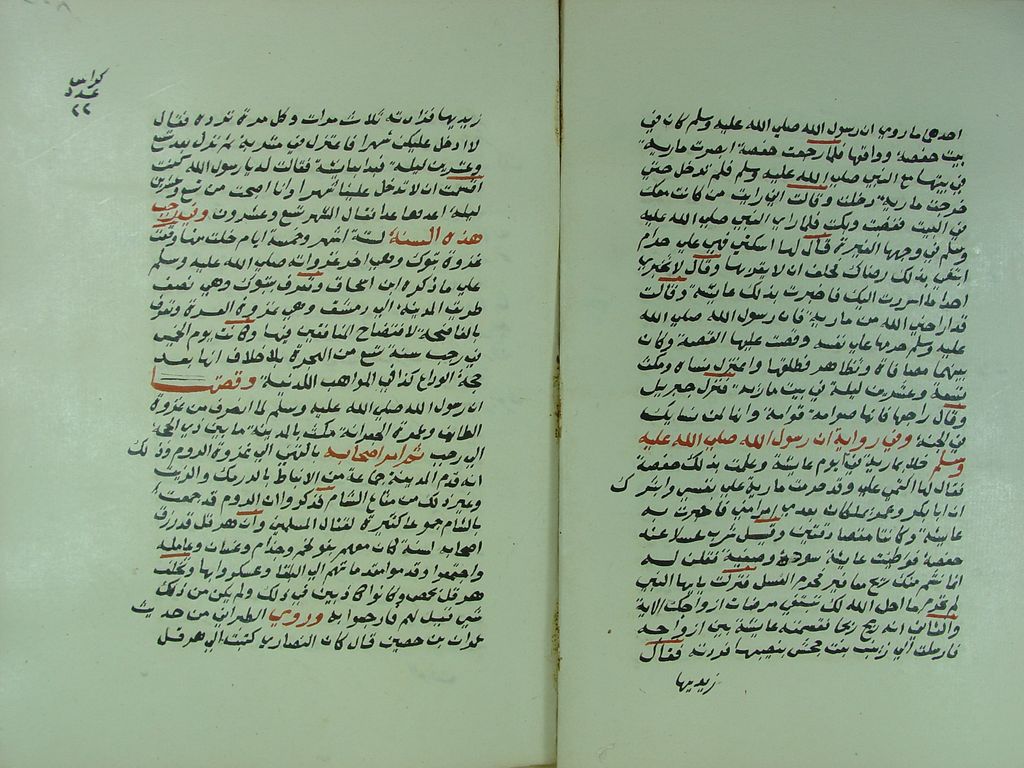 احدها ما روي ان رسول الله صلي الله عليه وسلم كان في
بيت حفصة ووافقها فلما رجعت حفصة ابصرت مارية
في بيتها مع النبي صلي الله عليه وسلم فلم تدخل حتي
خرجت مارية دخلت وقالت اني رايت من كانت معك
في البيت فغضبت وبكت فلما راي النبي صلي الله عليه
وسلم في وجهها الغيرة قال لها اسكتي فهي علي حرام
ابتغي بذلك رضاك فحلف ان لا يقربها وقال لا تخبري
احدا ما اسررت اليك فاخبرت بذلك عايشة وقالت
قد اراحني الله من مارية فان رسول الله صلي الله
عليه وسلم حرمها علي نفسه وقصت عليها القصة وكان
بينهما مصافاة وتظاهر فطلقها واعتزل نساه ومكث
تسعة وعشرين ليلة في بيت مارية فنزل جبريل
وقال راجعها فانها صوامة قوامة وانها لمن نسايك
في الجنة وفي رواية ان رسول الله صلي الله عليه
وسلم خلا بمارية في يوم عايشة وعلمت بذلك حفصة
فقال لها اكتمي علي وقد حرمت مارية علي نفسي وابشرك
ان ابا بكر وعمر يملكان بعدي امر امتي فاخبرت به
عايشة وكانتا متصادقتين وقيل شرب عسلا عند
حفصة فواطئت عايشة سودة وصفية فقلن له
انما نشم منك ريح مغافير فحرم العسل فنزلت يايها النبي
لم تحرم ما احل الله لك تبتغي مرضات ازواجك الاية
والثاني انه ذبح ذبحا فقسمته عايشة بين ازواجه
فارسلت الي زينب بنت جحش بنصيبها فردته فقال
زيديها
كراس
عدد
٢٢
زيديها فزادته ثلاث مرات وكل مرة ترده فقال
لا ادخل عليكن شهرا فاعتزل في مشربة ثم نزل بعد تسع
وعشرين ليلة فبدا بعايشة فقالت له يا رسول الله كنت
اقسمت ان لا تدخل علينا شهرا وانا اصبحت من تسع وعشرين
ليلة اعدها عدا فقال الشهر تسع وعشرون وفي رجب
هذه السنة لستة اشهر وخمسة ايام خلت منها وقعت
غزوة تبوك وهي اخر غزواته صلي الله عليه وسلم
علي ما ذكره ابن اسحاق وتعرف بتبوك وهي نصف
طريق المدينة الي دمشق وهي غزوة العسرة وتعرف
بالفاضحة لافتضاح المنافقين فيها وكانت يوم الخميس
في رجب سنة تسع من الهجرة بلا خلاف انها بعد
حجة الوداع كذا في المواهب اللدنية وقصتها
ان رسول الله صلي الله عليه وسلم لما انصرف من غزوة
الطايف وعمرة الجعرانة مكث بالمدينة ما بين ذي الحجة
الي رجب ثم امر اصحابه بالتهيي الي غزوة الروم وذلك
انه قدم المدينة جماعة من الانباط بالدرمك والزيت
وغير ذلك من متاع الشام فذكروا ان الروم قد جمعت
بالشام جموعا كثيرة لقتال المسلمين وان هرقل قد رزق
اصحابه لسنة كان معهم بنو لخم وجذام وغسان وعاملة
واجتمعوا وقدموا مقدماتهم الي البلقا وعسكروا بها وتخلف
هرقل بحمص وكانوا كاذبين في ذلك ولم يكن من ذلك
شي قيل لهم فارجفوا به وروي الطبراني من حديث
عمران بن حصين قال كان النصاري كتبت الي هرقل